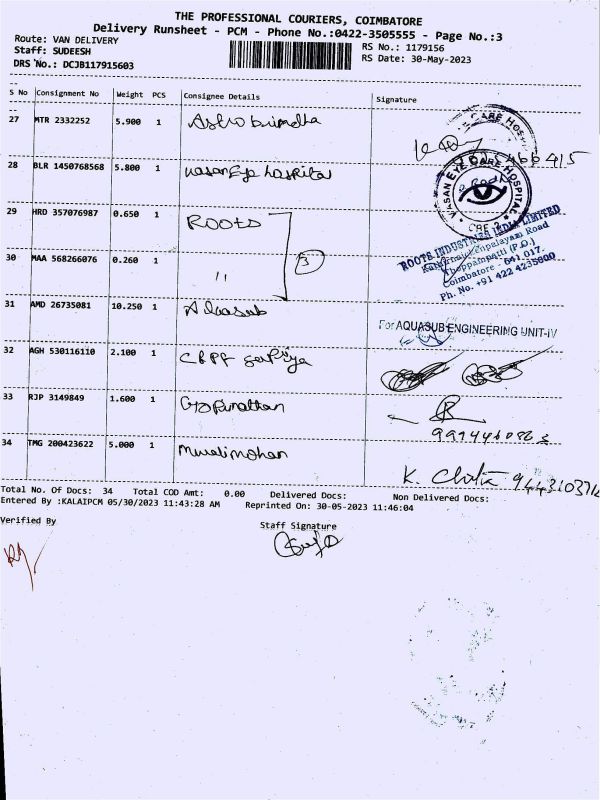 THE PROFESSIONAL COURIERS, COIMBATORE
Delivery Runsheet - PCM - Phone No.:0422-3505555 - Page No.:3
Route: VAN DELIVERY
Staff: SUDEESH
DRS No.: DCJB117915603
RS No.: 1179156
RS Date: 30-May-2023
S No Consignment No Weight PCS Consignee Details Signature
27 MTR 2332252 5.900 1
28 BLR 1450768568 5.800 1 Vasan Eye hospital
VASAN EYE CARE HOSPITAL
CBE-2
29 HRD 357076987 0.650 1 ROOTS
30 MAA 568266076 0.260 1 "
3
ROOTS INDUSTRIES INDIA LIMITED
Thoppampatti (P.O.)
Coimbatore - 641 017.
Ph. No. +91 422 4235600
31 AMD 26735081 10.250 1 Aquasub
For AQUASUB ENGINEERING UNIT-IV
32 AGH 530116110 2.100 1
33 RJP 3149849 1.600 1 Gopinathan
34 TMG 200423622 5.000 1 Muralimohan
Total No. Of Docs: 34 Total COD Amt: 0.00 Delivered Docs: Non Delivered Docs:
Entered By :KALAIPCM 05/30/2023 11:43:28 AM Reprinted On: 30-05-2023 11:46:04
Verified By
Staff Signature